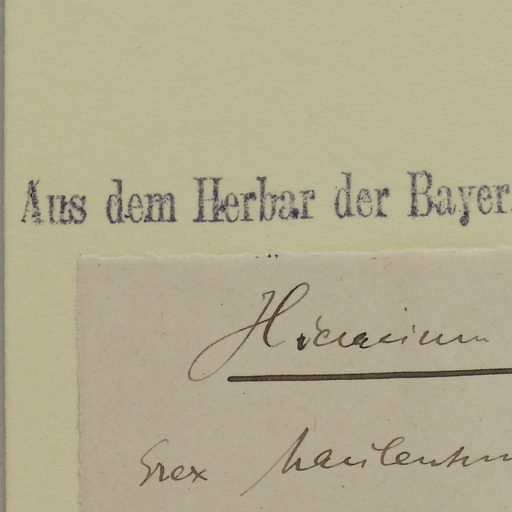 Aus dem Herbar der Bayer.
Hieracium
Grex